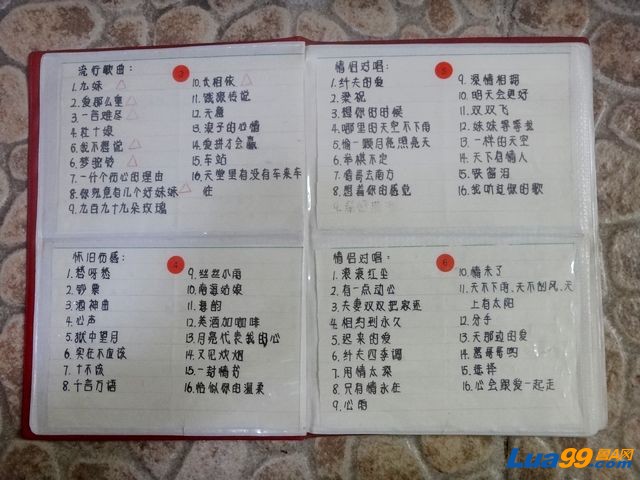 流行歌曲：
3
1.九妹
2.爱那么重
3.一言难尽
4.杜十娘
5.我不想说
6.梦驼铃
7.一什个伤心的理由
8.你究竟有几个好妹妹
9.九百九十九朵玫瑰
10.大相依
11.饿狼传说
12.天意
13.浪子的心情
14.爱拼才会赢
15.车站
16.天堂里有没有车来车
往
情侣对唱：
5
1.纤夫的爱
2.梁祝
3.想你的时候
4.哪里的天空不下雨
5.偷一颗月亮照亮天
6.举棋不定
7.情哥去南方
8.想着你的感觉
9.深情相拥
10.明天会更好
11.双双飞
12.妹妹等等我
13.一样的天空
14.天下有情人
15.铁窗泪
16.我听过你的歌
怀旧伤感：
4
1.愁呀愁
2.钞票
3.酒神曲
4.心声
5.狱中望月
6.实在不应该
7.十不该
8.千言万语
9.丝丝小雨
10.南海姑娘
11.海韵
12.美酒加咖啡
13.月亮代表我的心
14.又见炊烟
15.一封情书
16.恰似你的温柔
情侣对唱：
6
1.滚滚红尘
2.有一点动心
3.夫妻双双把家还
4.相约到永久
5.迟来的爱
6.纤夫四季调
7.用情太深
8.只有情永在
9.心雨
10.情未了
11.天不下雨，天不刮风，天
上有太阳
12.分手
13.天那边的爱
14.慕哥哥哟
15.选择
16.心会跟爱一起走
Lua99